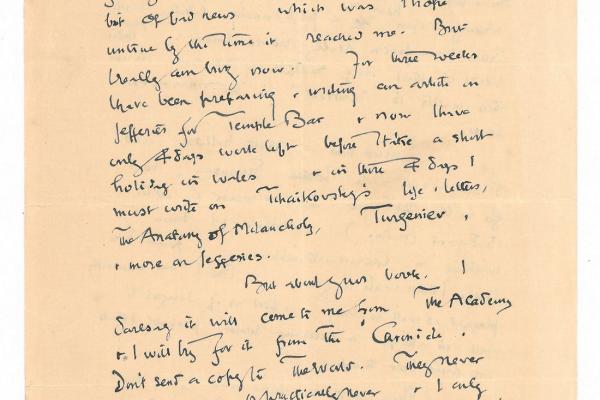 bit of bad news which was I hope
untrue by the time it reached me. But
I really am busy now. For three weeks
I have been preparing & writing an article on
Jefferies for Temple Bar & now I have
only 4 days work left before I take a short
holiday in Wales & in those 4 days I
must write on Tchaikovsky's life & letters,
The Anatomy of Melancholy, Turgeniev,
& more on Jefferies.
But about your book. I
daresay it will come to me from The Academy
& I will try for it from The Chronicle.
Don't send a copy to The World. They never
practically never & I only